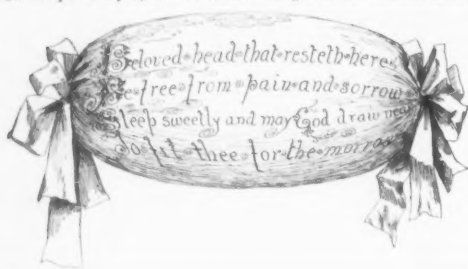 Beloved head that resteth here
Be free from pain and sorrow
Sleep sweetly and may God draw near
To fit thee for the morrow